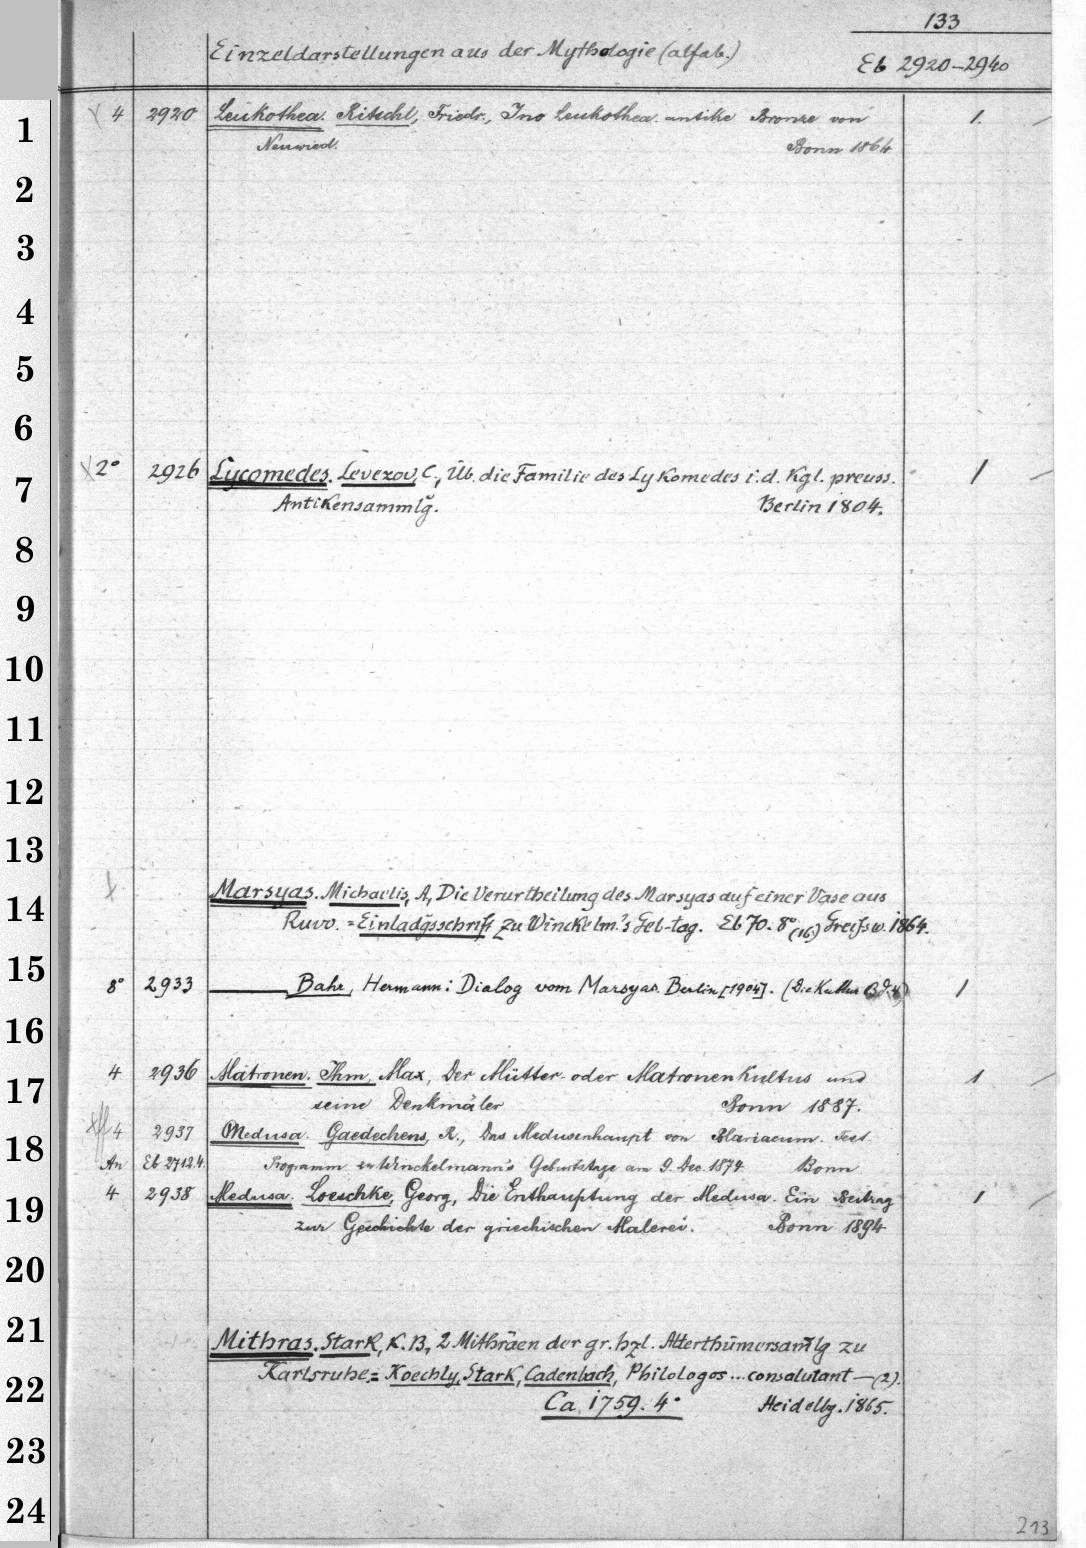 133
Einzeldarstellungen aus der Mythologie (alfab.)
Eb 2920-2940
1
4 2920 Leukothea. Ritschl, Friedr., Ino Leukothea. antike Bronze von 1.
Neuwied. Bonn 1864
2
3
4
5
6
2° 2926 Lycomedes. Levezov, C., Üb. die Familie des Lykomedes i. d. Kgl. preuss. 1
7
Antikensammlg. Berlin 1804.
8
9
10
11
12
13
Marsyas. Michaelis, A., Die Verurtheilung des Marsyas auf einer Vase aus
14
Ruvo. = Einladgsschrift zu Winckelm.'s Geb-tag. Eb 70. 8° (16) Greifsw. 1864.
15
8° 2933 Bahr, Hermann: Dialog vom Marsyas. Berlin [1904]. (Die Kultur Bd. 1
16
4 2936 Matronen. Ihm, Max, Der Mütter- oder Matronenkultus und 1
17
seine Denkmäler Bonn 1887.
4 2937 Medusa. Gaedechens, R., Das Medusenhaupt von Blariacum. Fest-
18
An Eb 2712.4 Programm zu Winckelmann's Geburtstage am 9. Dec. 1874 Bonn
4 2938 Medusa. Loeschke, Georg, Die Enthauptung der Medusa. Ein Beitrag 1
19
zur Geschichte der griechischen Malerei. Bonn 1894
20
21
Mithras. Stark, K. B., 2 Mithräen der gr. hzl. Alterthümersamlg zu
22
Karlsruhe. = Koechly, Stark, Cadenbach, Philologos ... consalutant — (2).
Ca 1759. 4° Heidelbg. 1865.
23
24
213